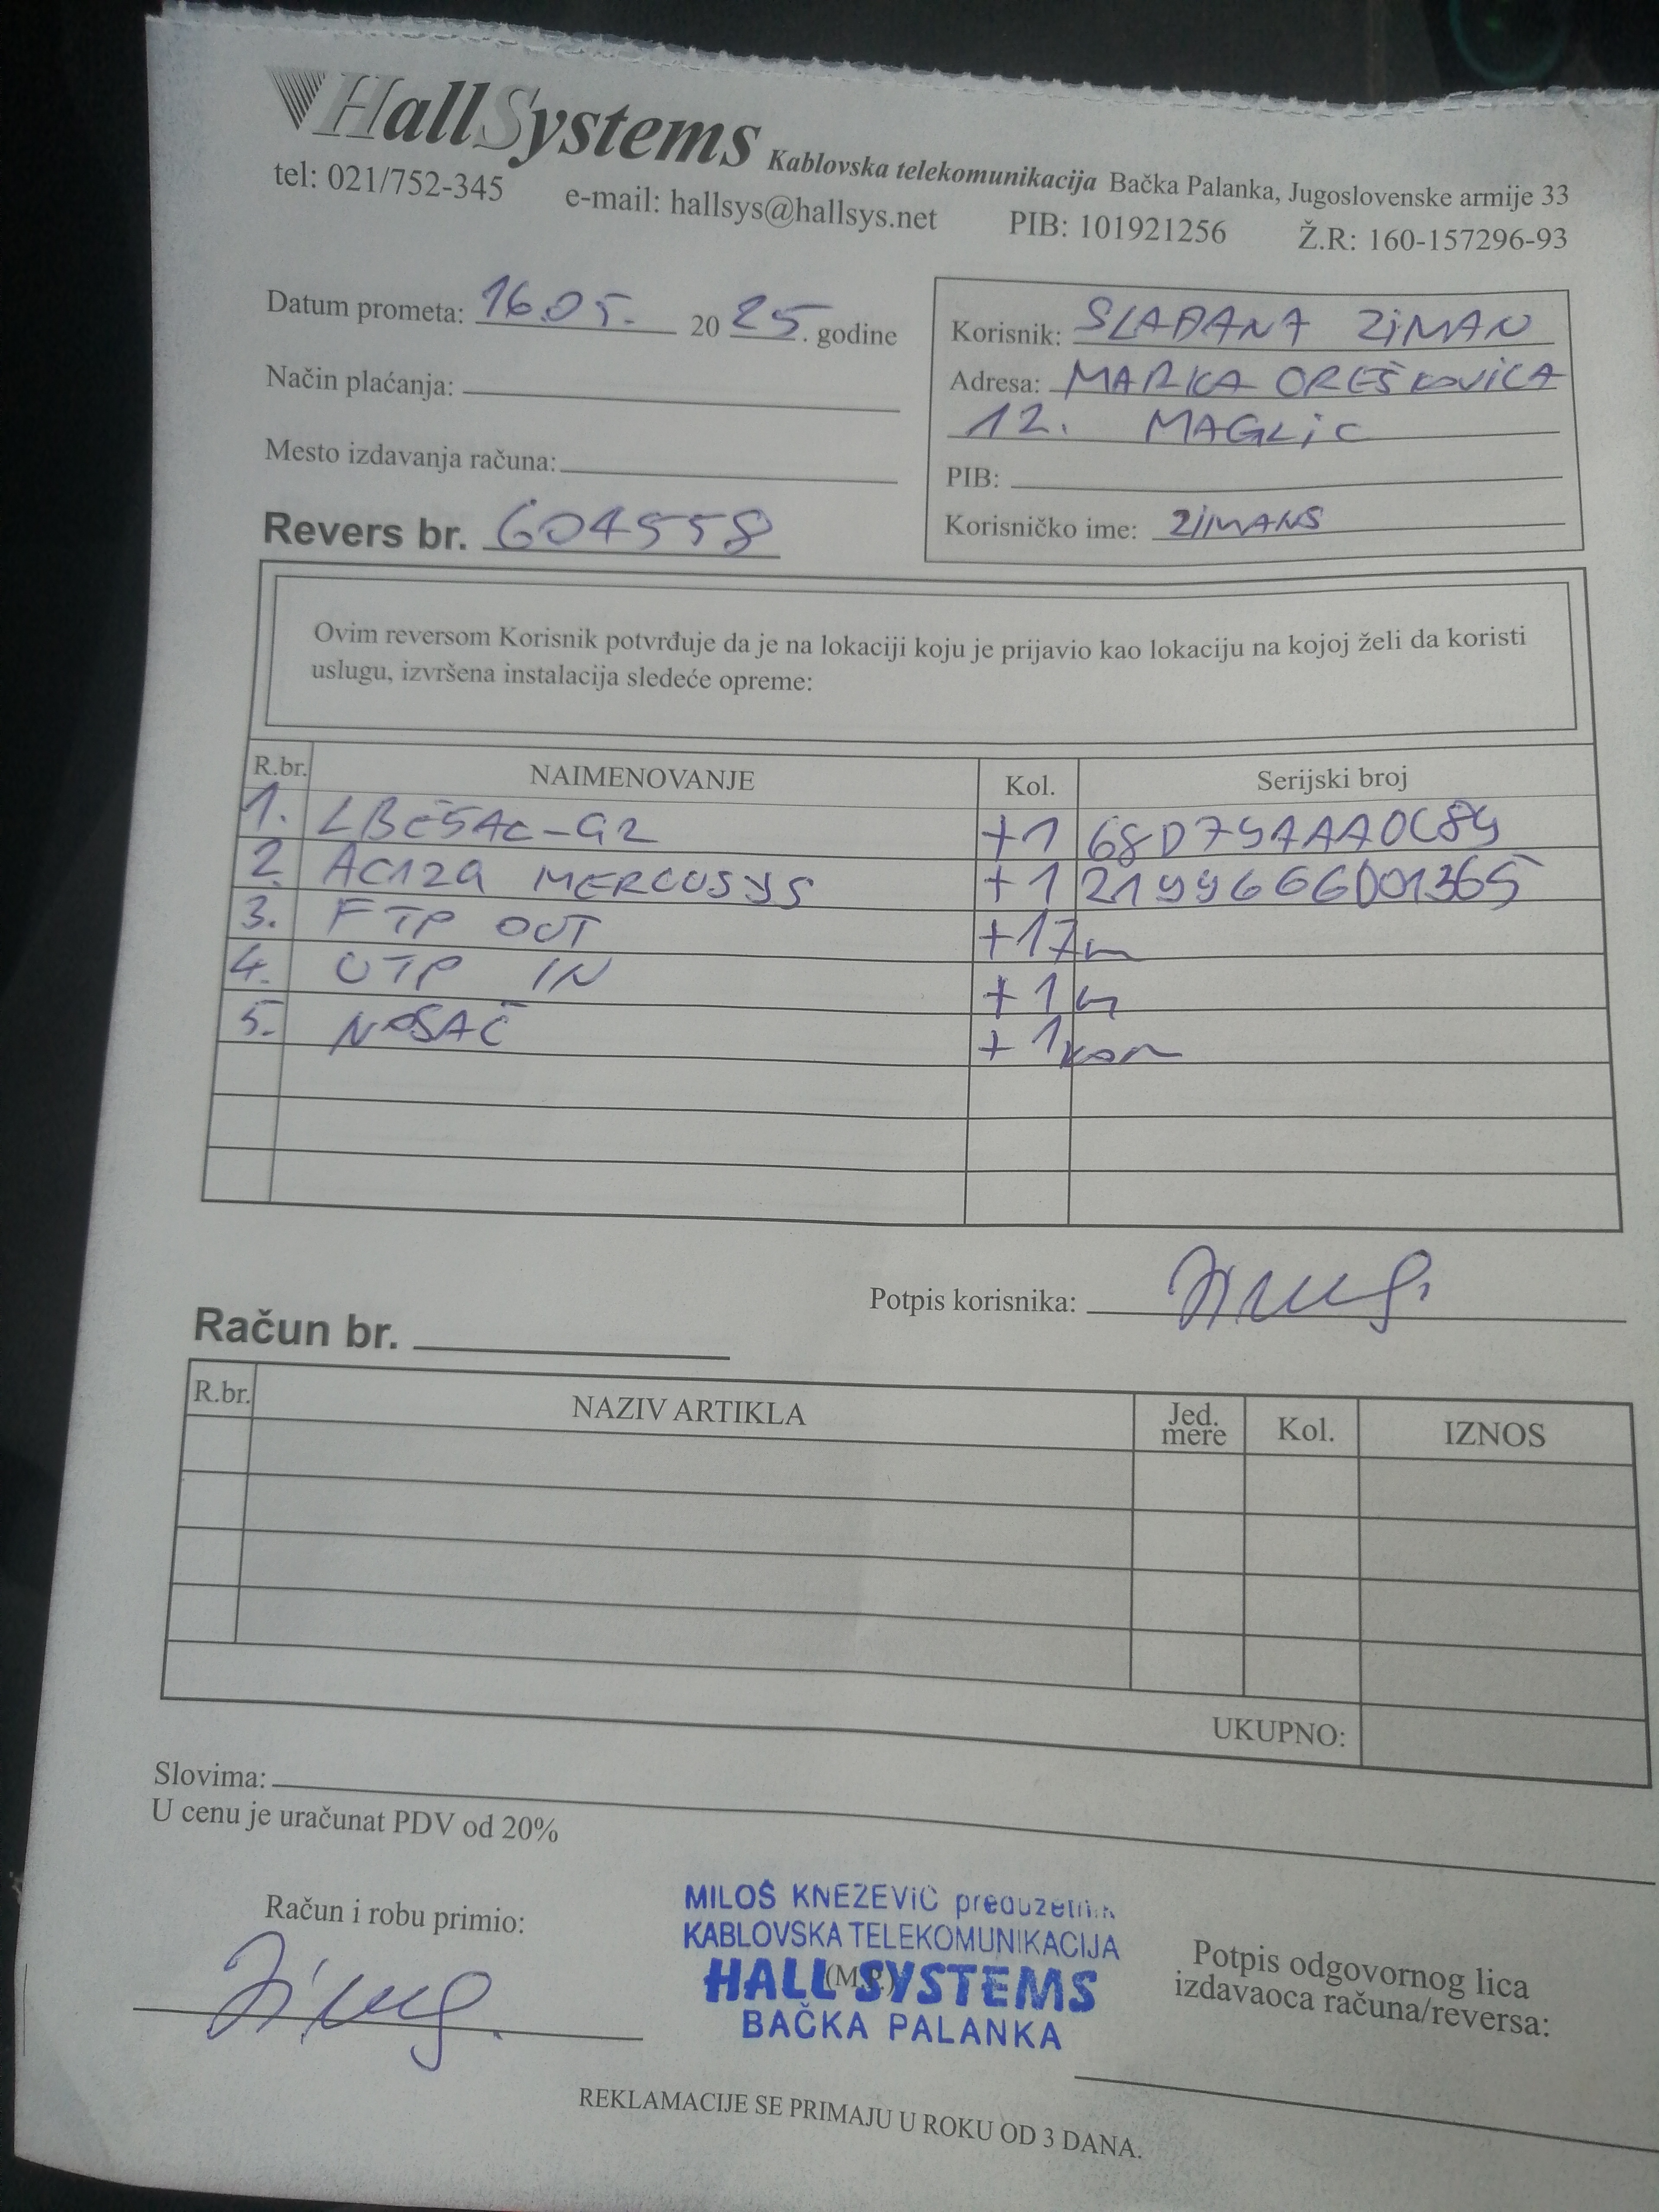 HallSystems Kablovska telekomunikacija Bačka Palanka, Jugoslovenske armije 33
tel: 021/752-345 e-mail: hallsys@hallsys.net PIB: 101921256 Ž.R: 160-157296-93
Datum prometa: 16.05. 2025. godine
Način plaćanja:
Mesto izdavanja računa:
Revers br. 604558
Korisnik: SLAĐANA ZIMAN
Adresa: MARKA OREŠKOVIĆA
12. MAGLIĆ
PIB:
Korisničko ime: ZIMANS
Ovim reversom Korisnik potvrđuje da je na lokaciji koju je prijavio kao lokaciju na kojoj želi da koristi
uslugu, izvršena instalacija sledeće opreme:
R.br. NAIMENOVANJE Kol. Serijski broj
1. LBE5AC-G2 +1 68D79AAA0C89
2. AC12G MERCUSYS +1 2199666001365
3. FTP OUT +17m
4. UTP IN +1m
5. NOSAČ +1kom
Potpis korisnika:
Račun br.
R.br. NAZIV ARTIKLA Jed. mere Kol. IZNOS
UKUPNO:
Slovima:
U cenu je uračunat PDV od 20%
Račun i robu primio:
MILOŠ KNEŽEVIĆ preduzetnik
KABLOVSKA TELEKOMUNIKACIJA
HALL SYSTEMS
BAČKA PALANKA
(M.P.)
Potpis odgovornog lica
izdavaoca računa/reversa:
REKLAMACIJE SE PRIMAJU U ROKU OD 3 DANA.